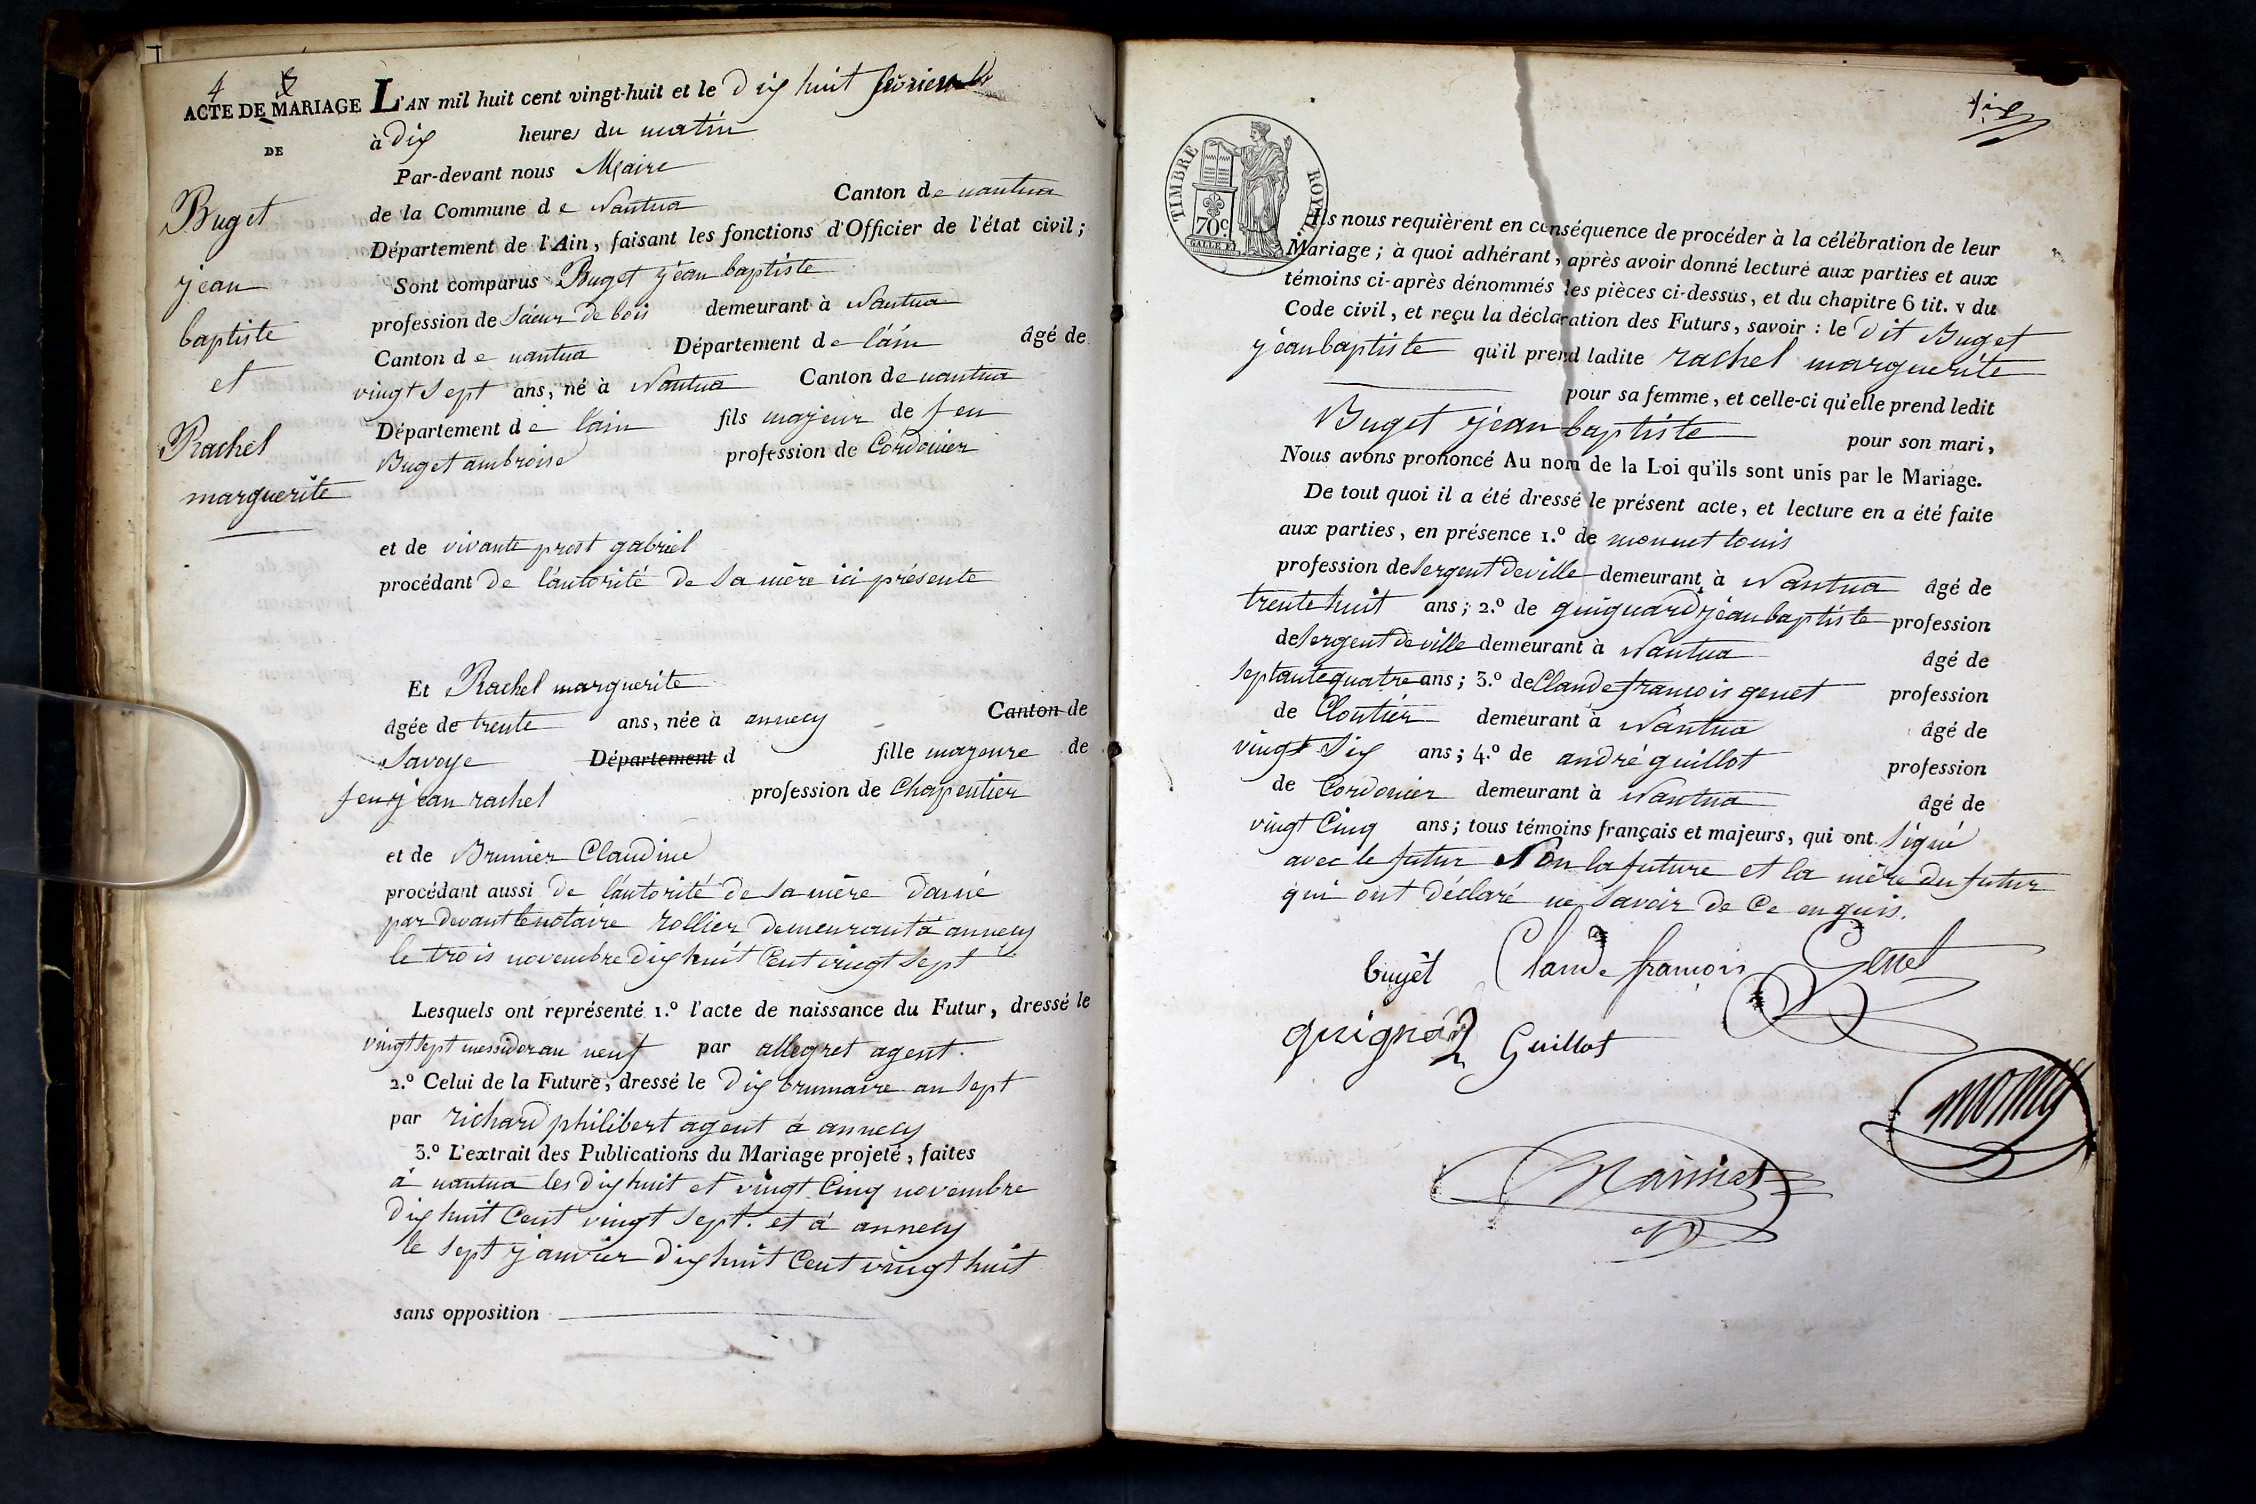 4
ACTE DE MARIAGE
DE
Buget
jean
baptiste
et
Rachel
marguerite
L'AN mil huit cent vingt-huit et le dix huit février
à dix heures du matin
Par-devant nous Maire
de la Commune de Nantua Canton de nantua
Département de l'Ain, faisant les fonctions d'Officier de l'état civil;
Sont comparus Buget jean baptiste
profession de Sieur de bois demeurant à Nantua
Canton de nantua Département de l'ain âgé de
vingt sept ans, né à Nantua Canton de nantua
Département de l'ain fils majeur de feu
Buget ambroise profession de Cordonier
et de vivante prost gabriel
procédant de l'autorité de sa mère ici présente
Et Rachel marguerite
âgée de trente ans, née à annecy Canton de
Savoye Département d fille majeure de
feu jean rachel profession de Charpentier
et de Brunier Claudine
procédant aussi de l'autorité de sa mère donné
par devant le notaire rollier demeurant à annecy
le trois novembre dix huit Cent vingt Sept
Lesquels ont représenté 1.º l'acte de naissance du Futur, dressé le
vingt sept messidor an neuf par allegret agent.
2.º Celui de la Future, dressé le dix brumaire an sept
par richard philibert agent à annecy
3.º L'extrait des Publications du Mariage projeté, faites
à nantua les dix huit et vingt Cinq novembre
dix huit Cent vingt sept. et à annecy
le sept janvier dix huit Cent vingt huit
sans opposition
TIMBRE ROYAL
70c
Ils nous requièrent en conséquence de procéder à la célébration de leur
Mariage; à quoi adhérant, après avoir donné lecture aux parties et aux
témoins ci-après dénommés les pièces ci-dessus, et du chapitre 6 tit. v du
Code civil, et reçu la déclaration des Futurs, savoir : le dit Buget
jean baptiste qu'il prend ladite rachel marguerite
pour sa femme, et celle-ci qu'elle prend ledit
Buget jean baptiste pour son mari,
Nous avons prononcé Au nom de la Loi qu'ils sont unis par le Mariage.
De tout quoi il a été dressé le présent acte, et lecture en a été faite
aux parties, en présence 1.º de monnet Louis
profession de Sergent de ville demeurant à Nantua âgé de
trente huit ans; 2.º de guignard jean baptiste profession
de Sergent de ville demeurant à Nantua âgé de
septante quatre ans; 3.º de Claude françois genet profession
de Cloutier demeurant à Nantua âgé de
vingt Six ans; 4.º de andré guillot profession
de Cordonier demeurant à Nantua âgé de
vingt Cinq ans; tous témoins français et majeurs, qui ont Signé
avec le futur Non la future et la mère du futur
qui ont déclaré ne Savoir de Ce enquis.
buget Claude françois Genet
guignard Guillot